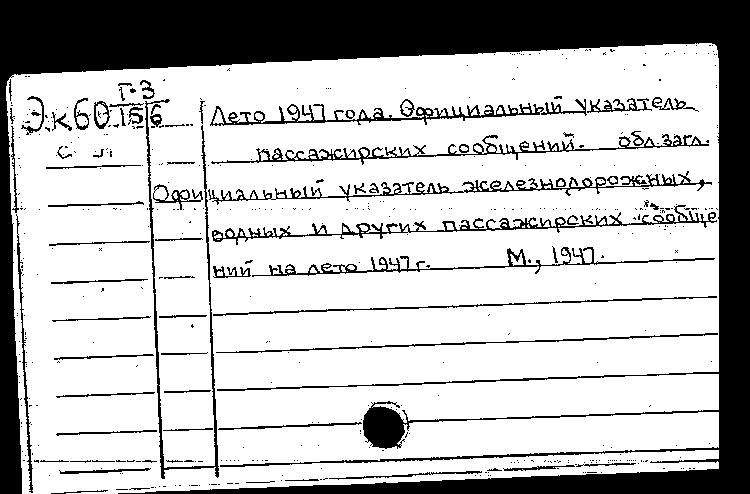 Г-3
Эк60 15 6
Лето 1947 года. Официальный указатель
пассажирских сообщений. обл. загл.
Официальный указатель железнодорожных,
водных и других пассажирских сообще
ний на лето 1947 г. М., 1947.